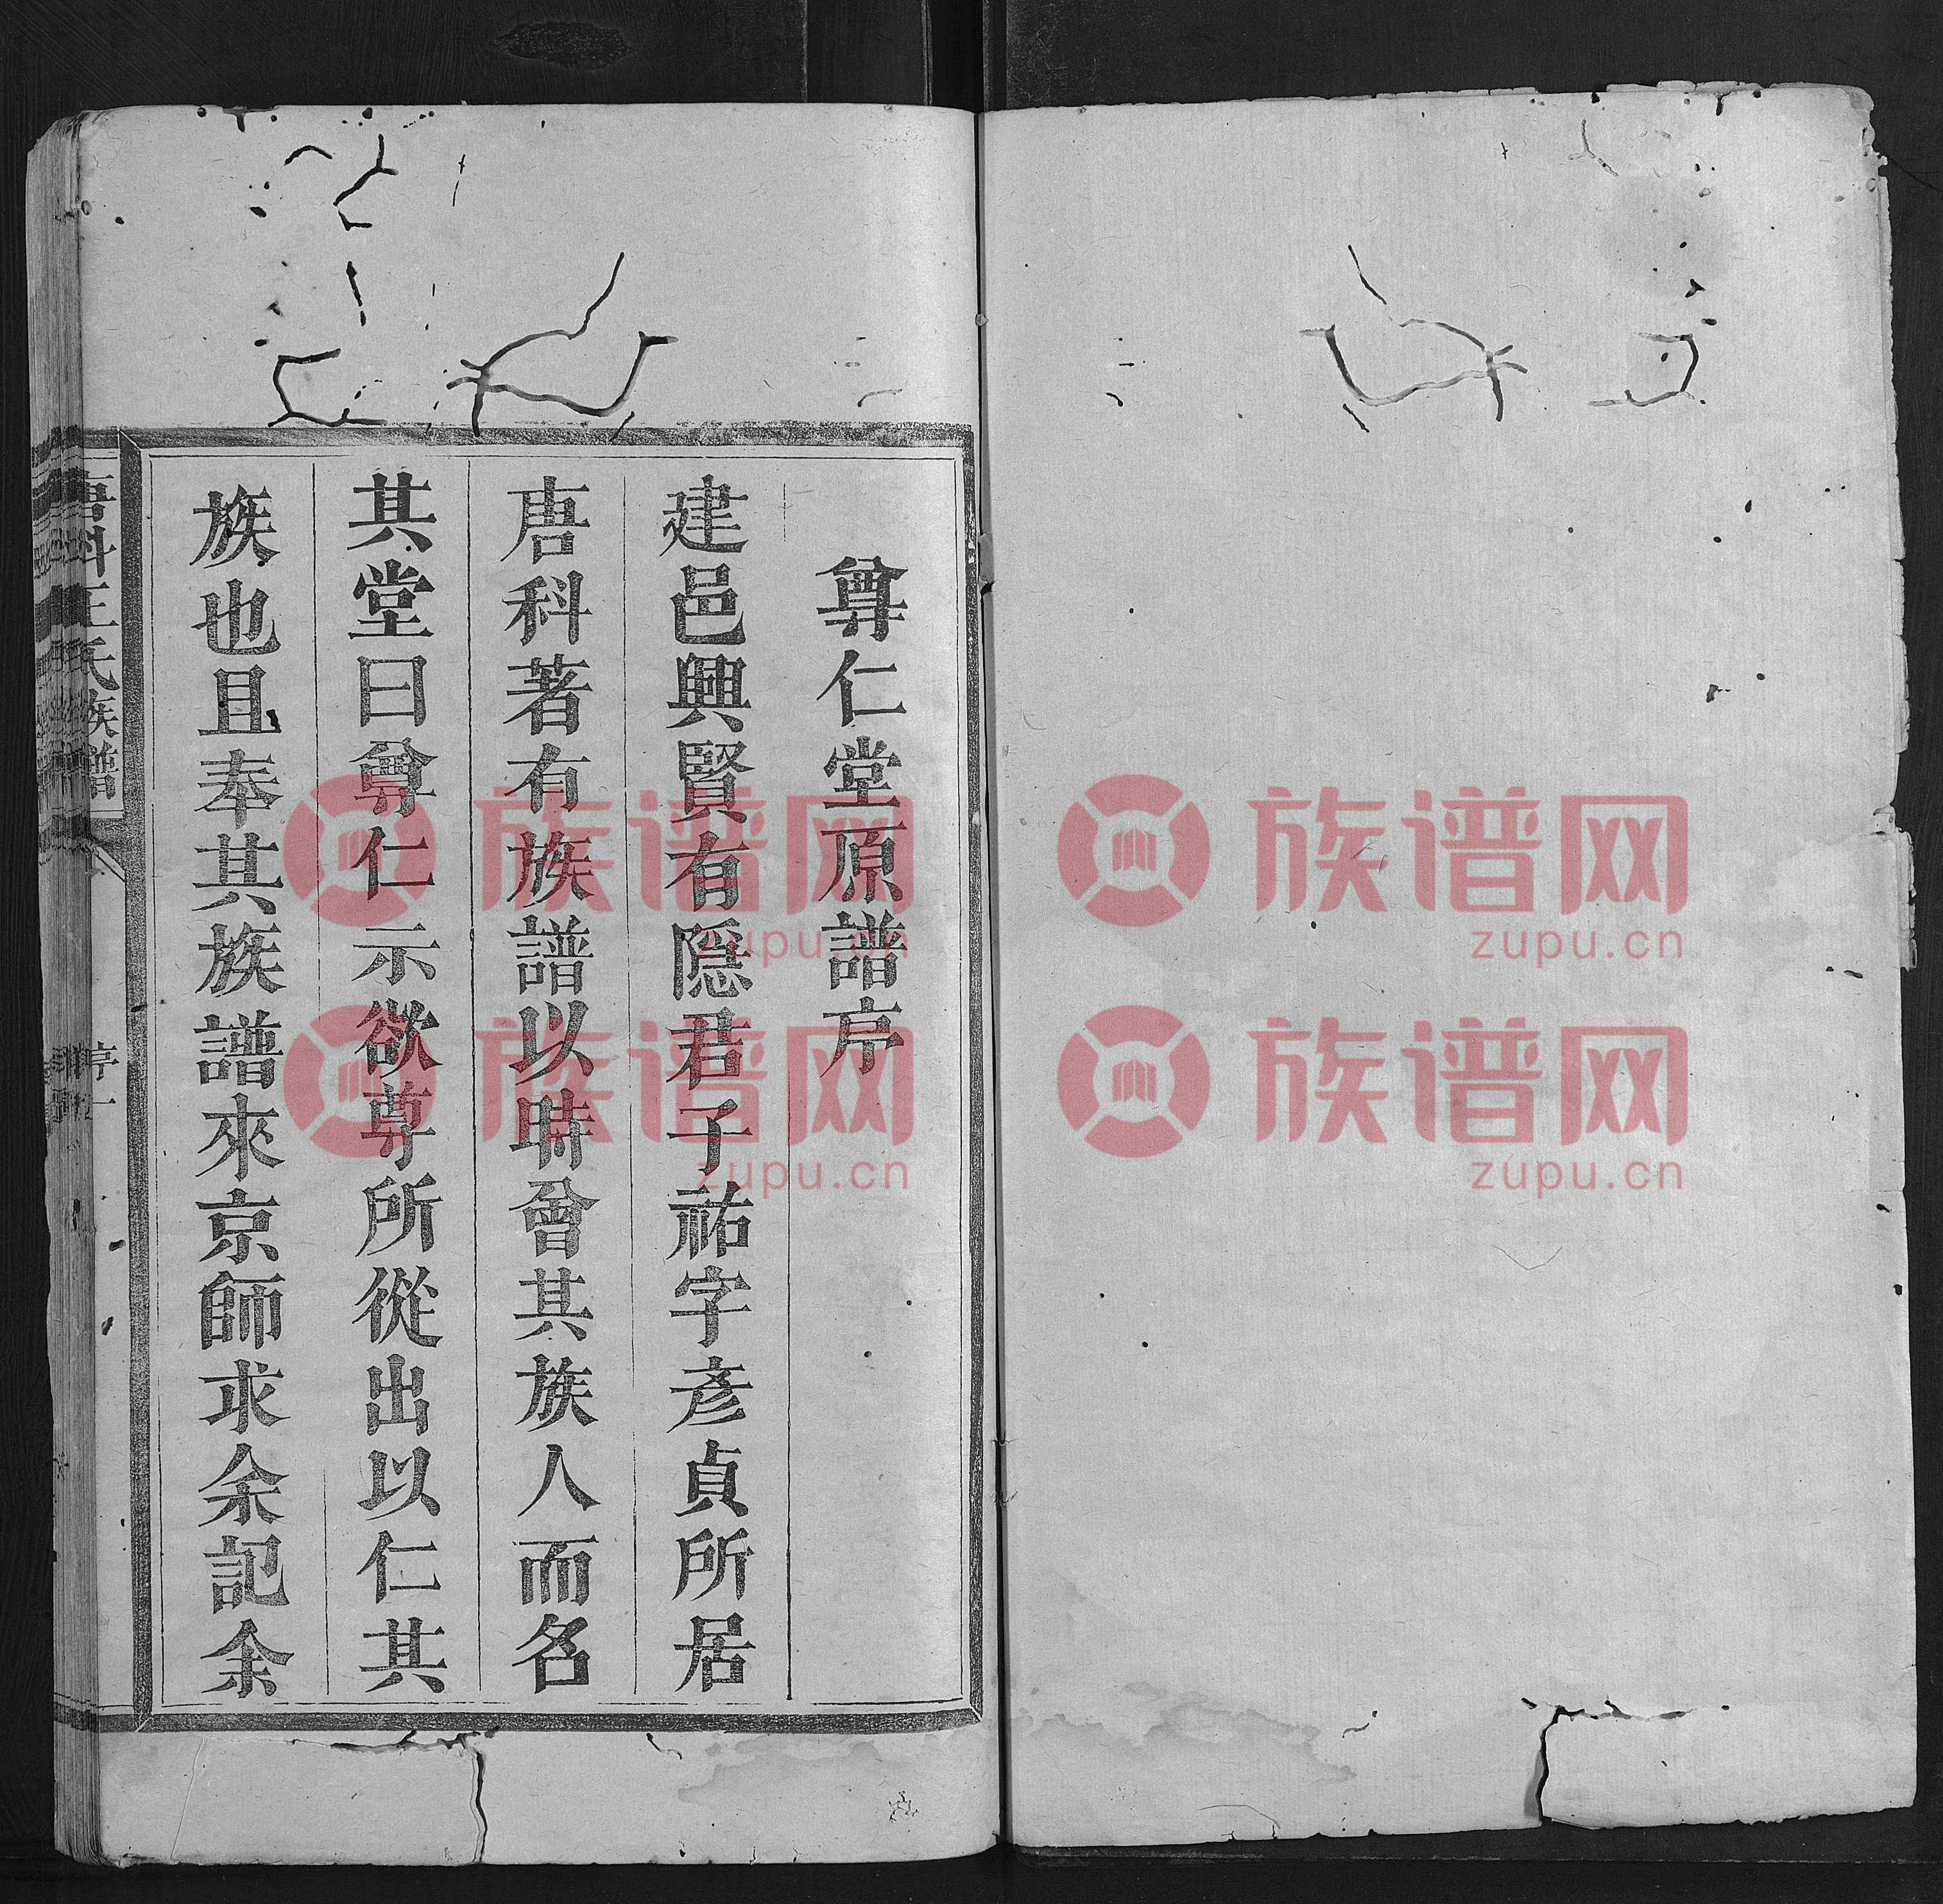 尊仁堂原譜序
建邑興賢有隱君子祐字彥貞所居
唐科著有族譜以時會其族人而名
其堂曰尊仁示欲尊所從出以仁其
族也且奉其族譜來京師求余記余
唐科王氏族譜
序 一
族谱网
zupu.cn
族谱网
zupu.cn
族谱网
zupu.cn
族谱网
zupu.cn